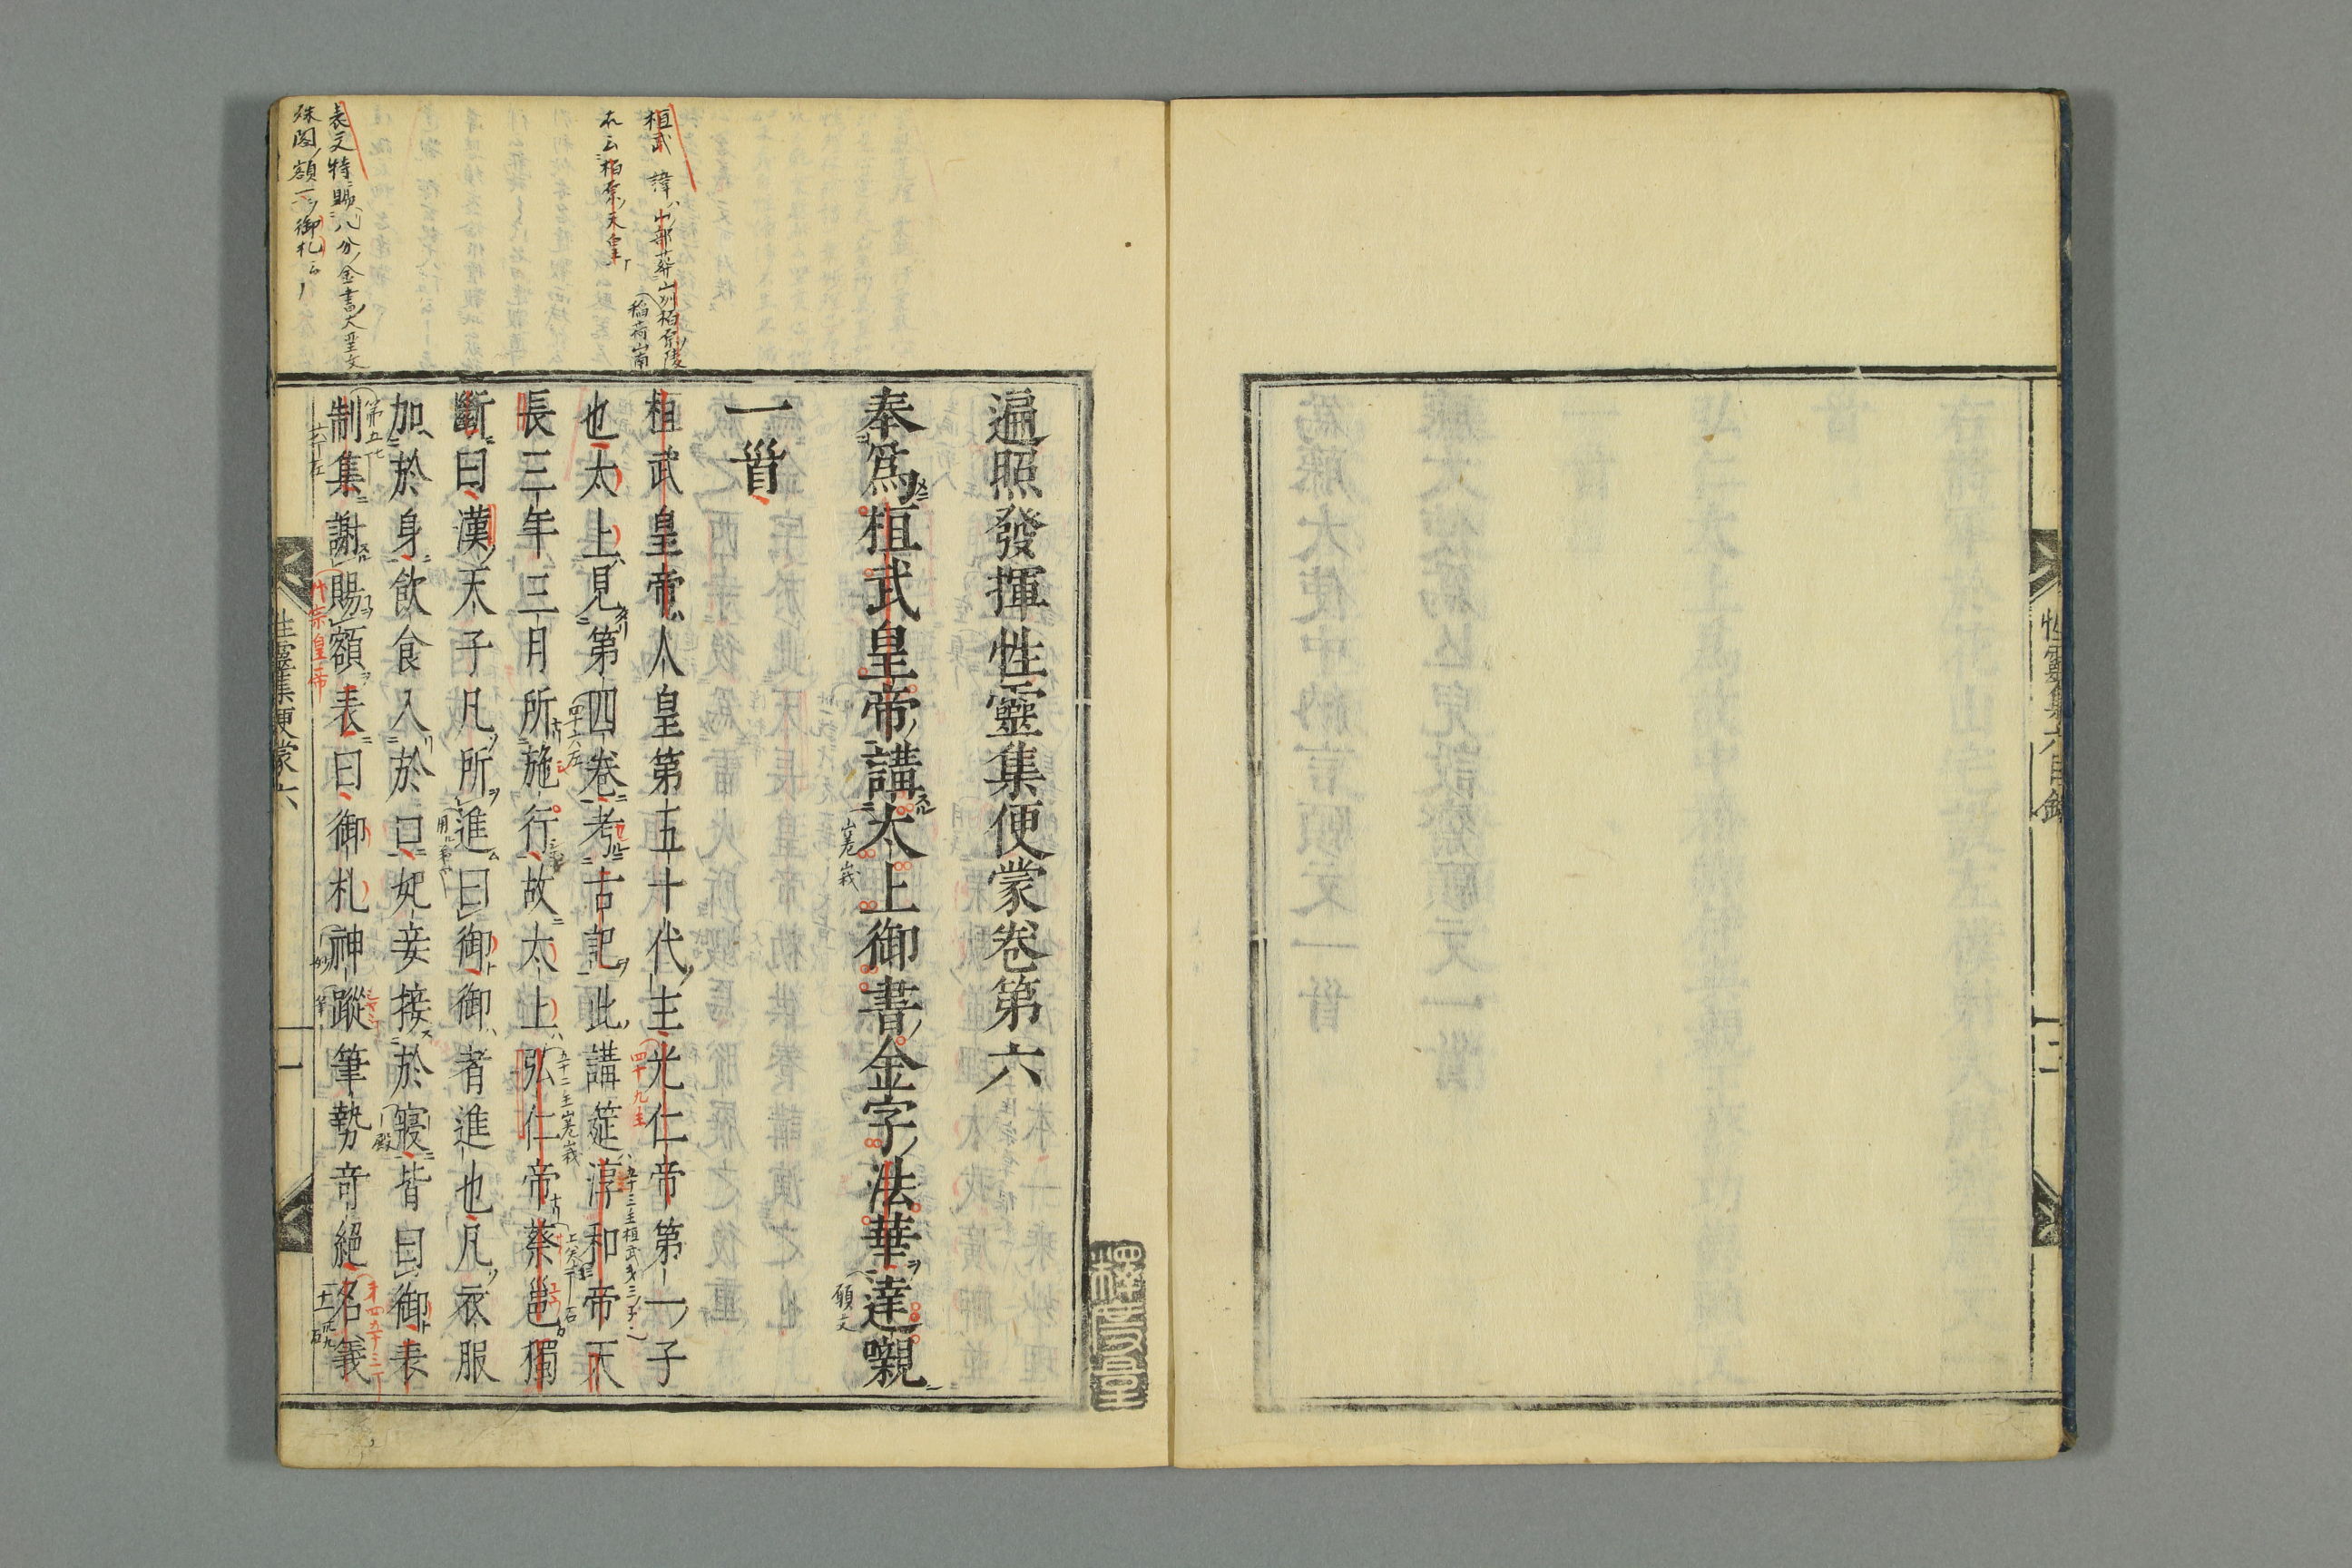 性靈集六目錄
三
遍照發揮性靈集便蒙卷第六
奉爲桓武皇帝講太上御書金字法華達嚫
嵯峨
願文
一首
桓武皇帝人皇第五十代主光仁帝第一子
四十九主
也太上見第四卷考古記此講筵淳和帝天
四十六左
長三年三月所施行故太上弘仁帝蔡邕獨
五十二主嵯峨
斷曰漢天子凡所進曰御御者進也凡衣服
加於身飲食入於口妃妾接於寢皆曰御表
殿
制集謝賜額表曰御札神蹤筆勢奇絕名義
代宗皇帝
性靈集便蒙六
一
桓武 諱ハ山部葬山州柏原陵
稲荷山南
亦云柏原ノ天皇
表文特賜八分金書大聖文
殊閣ノ額一御札云